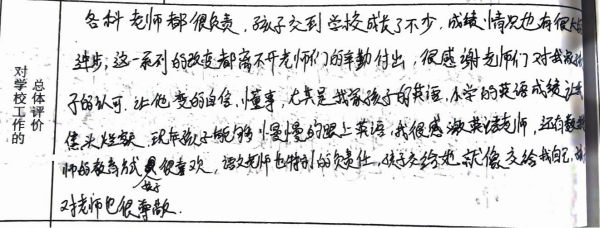 对学校工作的
总体评价
各科老师都很负责，孩子交到学校成长了不少，成绩情况也有很大
进步，这一系列的改变都离不开老师们的辛勤付出，很感谢老师们对我家孩
子的认可，让他变的自信，懂事，尤其是我家孩子的英语，小学的英语成绩让
焦头烂额，现在孩子能够慢慢的跟上英语，我很感激英语老师，还有数
师的教育方式孩子很喜欢，语文老师也特别的负责任，孩子交给她就像交给我自己，
对老师也很尊敬．